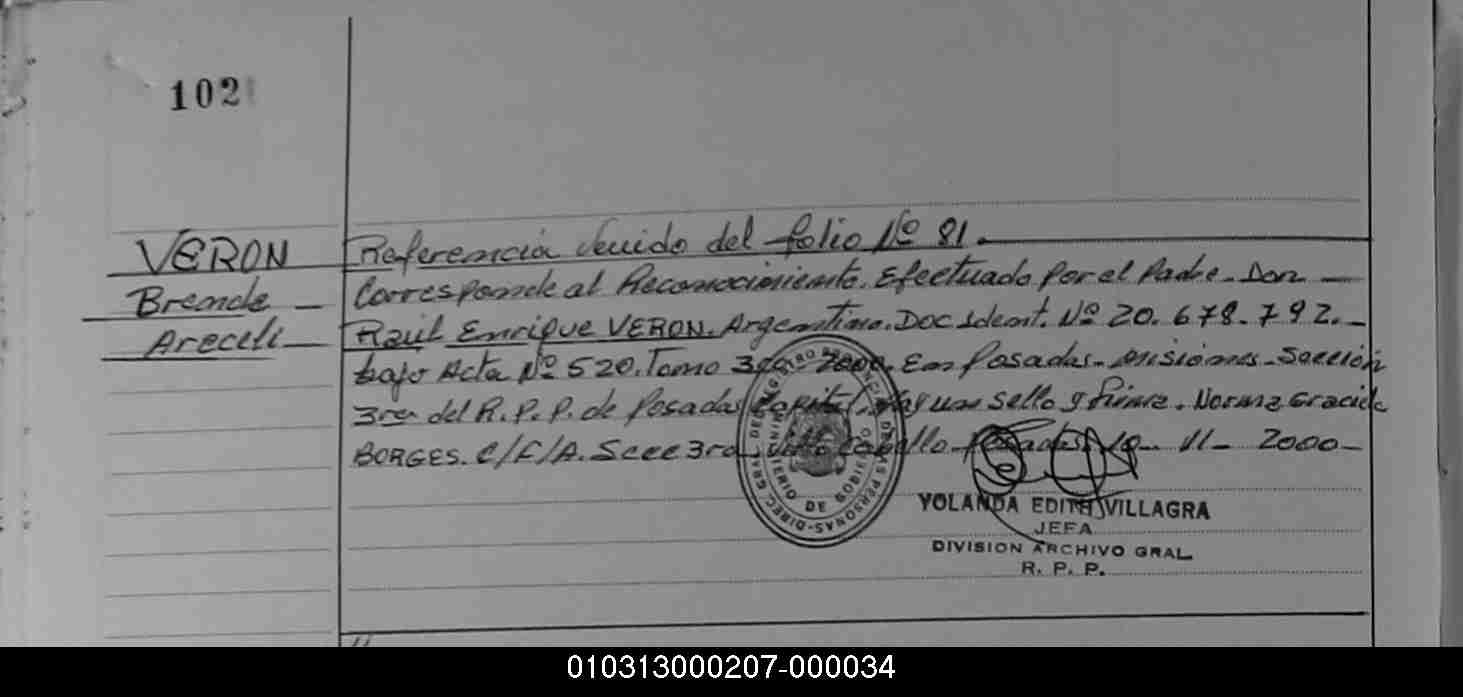 102
VERON
Brenda –
Araceli –
Referencia venido del folio Nº 81.
Corresponde al Reconocimiento. Efectuado por el Padre – Don –
Raúl Enrique VERON. Argentino. Doc Ident. Nº 20.678.792. –
bajo Acta Nº 520. Tomo 3ro – 2000. En Posadas – Misiones – Sección
3ra del R.P.P. de Posadas Capital. Hay un sello y firma. Norma Graciela
BORGES. C/F/A. Secc 3ra Villa Cabello – Posadas, 10 – 11 – 2000 –
DIREC. GRAL. DEL REGISTRO PROVINCIAL DE LAS PERSONAS
MINISTERIO DE GOBIERNO
YOLANDA EDITH VILLAGRA
JEFA
DIVISION ARCHIVO GRAL.
R. P. P.
010313000207-000034